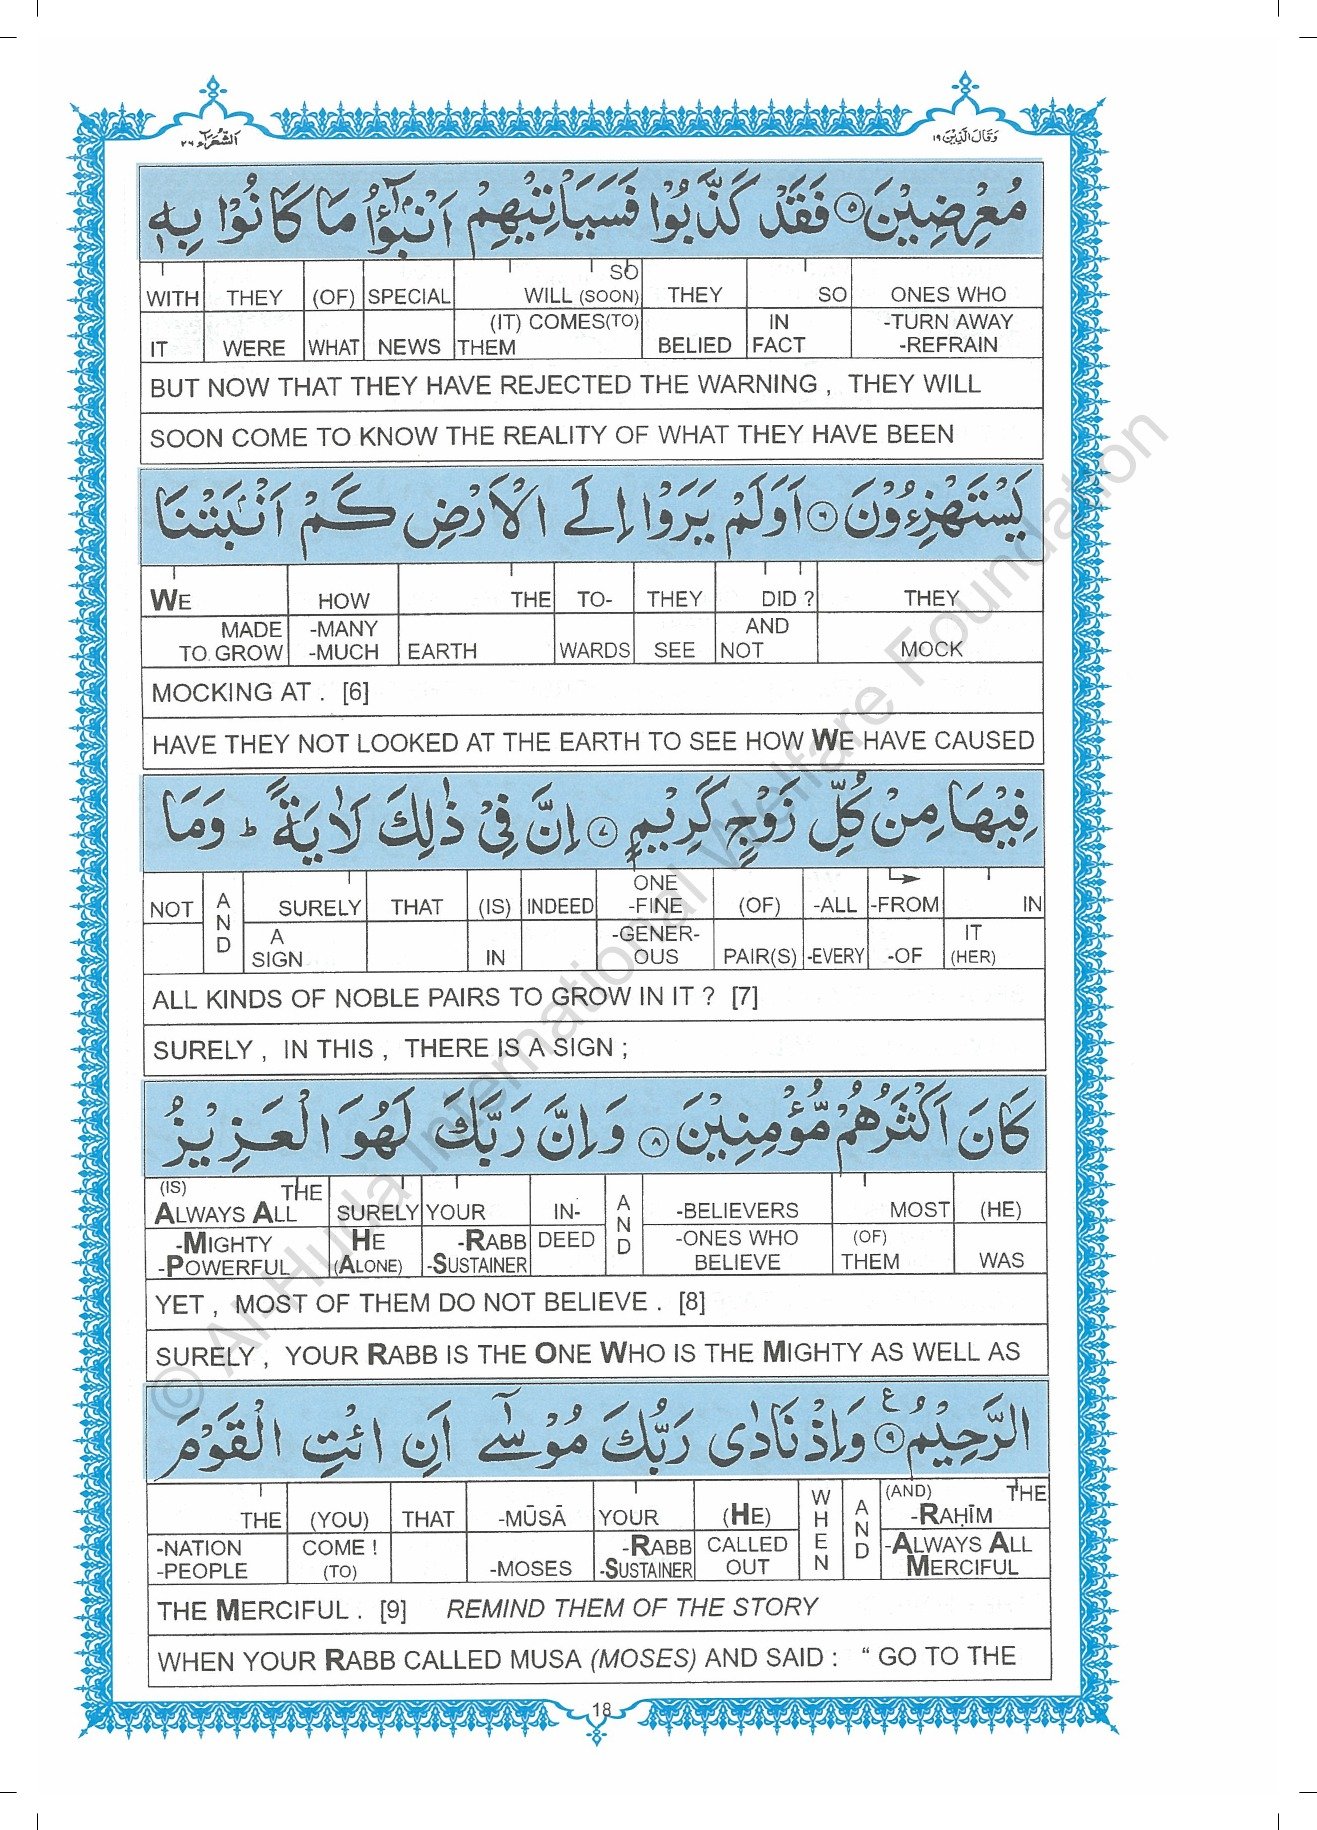 وَقَالَ الَّذِيْنَ ١٩
الشُّعَرَآء ٢٦
مُعْرِضِيْنَ ۝٥ فَقَدْ كَذَّبُوْا فَسَيَاْتِيْهِمْ اَنْۢبٰٓؤُا مَا كَانُوْا بِهٖ
WITH THEY (OF) SPECIAL SO WILL (SOON) THEY SO ONES WHO
IT WERE WHAT NEWS (IT) COMES(TO) THEM BELIED IN FACT -TURN AWAY -REFRAIN
BUT NOW THAT THEY HAVE REJECTED THE WARNING , THEY WILL
SOON COME TO KNOW THE REALITY OF WHAT THEY HAVE BEEN
يَسْتَهْزِءُوْنَ ۝٦ اَوَلَمْ يَرَوْا اِلَى الْاَرْضِ كَمْ اَنْۢبَتْنَا
WE HOW THE TO- THEY DID ? THEY
MADE TO GROW -MANY -MUCH EARTH WARDS SEE AND NOT MOCK
MOCKING AT . [6]
HAVE THEY NOT LOOKED AT THE EARTH TO SEE HOW WE HAVE CAUSED
فِيْهَا مِنْ كُلِّ زَوْجٍ كَرِيْمٍ ۝٧ اِنَّ فِيْ ذٰلِكَ لَاٰيَةً ؕ وَمَا
NOT AND SURELY THAT (IS) INDEED ONE -FINE (OF) -ALL -FROM IN
A SIGN IN -GENER- OUS PAIR(S) -EVERY -OF IT (HER)
ALL KINDS OF NOBLE PAIRS TO GROW IN IT ? [7]
SURELY , IN THIS , THERE IS A SIGN ;
كَانَ اَكْثَرُهُمْ مُّؤْمِنِيْنَ ۝٨ وَاِنَّ رَبَّكَ لَهُوَ الْعَزِيْزُ
(IS) THE ALWAYS ALL SURELY YOUR IN- AND -BELIEVERS MOST (HE)
-MIGHTY -POWERFUL HE (ALONE) -RABB -SUSTAINER DEED -ONES WHO BELIEVE (OF) THEM WAS
YET , MOST OF THEM DO NOT BELIEVE . [8]
SURELY , YOUR RABB IS THE ONE WHO IS THE MIGHTY AS WELL AS
الرَّحِيْمُ ۝٩ ع وَاِذْ نَادٰى رَبُّكَ مُوْسٰٓى اَنِ ائْتِ الْقَوْمَ
THE (YOU) THAT -MŪSĀ YOUR (HE) WHEN AND (AND) THE -RAḤĪM
-NATION -PEOPLE COME ! (TO) -MOSES -RABB -SUSTAINER CALLED OUT -ALWAYS ALL MERCIFUL
THE MERCIFUL . [9] REMIND THEM OF THE STORY
WHEN YOUR RABB CALLED MUSA (MOSES) AND SAID : “ GO TO THE
18
© Al-Huda International Welfare Foundation